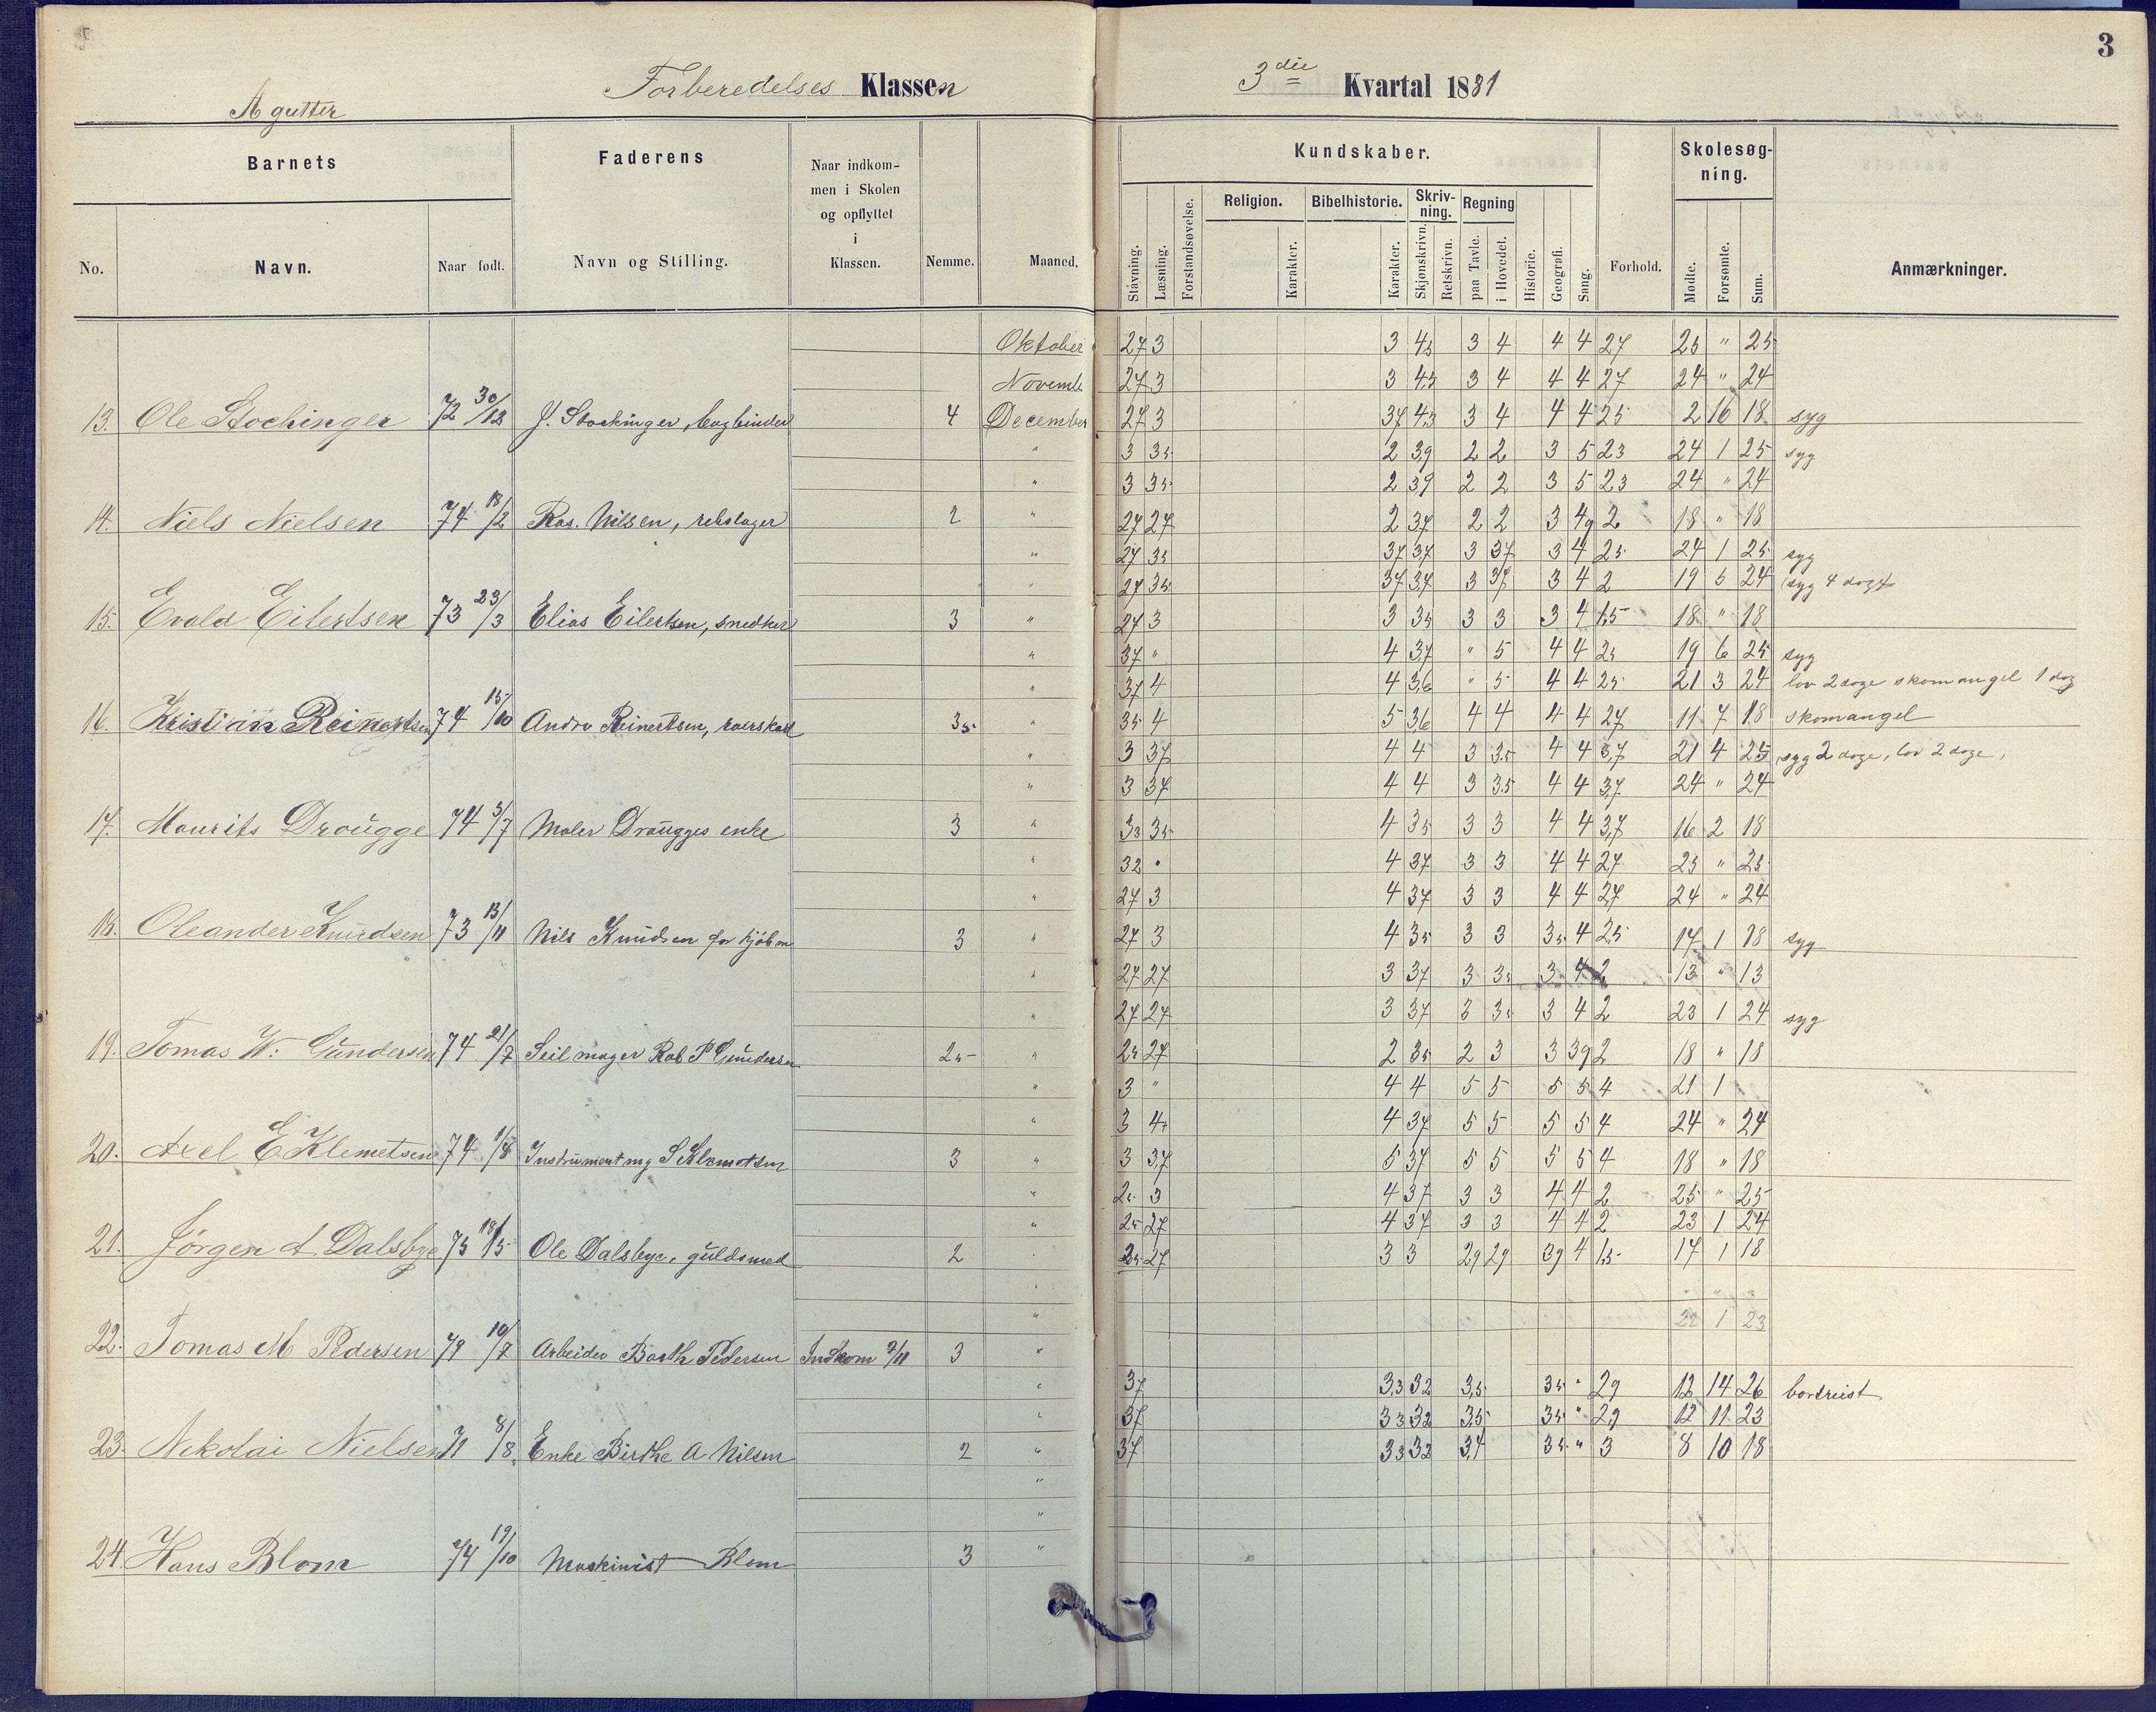 3
Forberedelses Klassen
3die Kvartal 1881
A gutter
Barnets
Faderens
Naar indkom-
men i Skolen
og opflyttet
i
Klassen.
Kundskaber.
Skolesøg-
ning.
Religion.
Bibelhistorie.
Skriv-
ning.
Regning
No.
Navn.
Naar født.
Navn og Stilling.
Nemme.
Maaned.
Stavning.
Læsning.
Forstandsøvelse.
Karakter.
Karakter.
Skjønskrivn.
Retskrivn.
paa Tavle.
i Hovedet.
Historie.
Geografi.
Sang.
Forhold.
Mødte.
Forsømte.
Sum.
Anmærkninger.
Oktober 27 3 3 45 3 4 4 4 27 25 " 25
Novemb 27 3 3 45 3 4 4 4 27 24 " 24
13. Ole Stockinger 72 30/12 J. Stockinger, bogbinder 4 December 27 3 37 43 3 4 4 4 25 2 16 18 syg
" 3 35 2 39 2 2 3 5 23 24 1 25 syg
" 3 35 2 39 2 2 3 5 23 24 " 24
14. Niels Nielsen 74 18/2 Ras. Nilsen, rebslager 2 " 27 27 2 37 2 2 3 49 2 18 " 18
" 27 35 37 37 3 37 3 4 25 24 1 25 syg
" 27 35 37 37 3 37 3 4 2 19 5 24 syg 4 dage
15. Evald Eilertsen 73 23/3 Elias Eilertsen, snedker 3 " 27 3 3 35 3 3 3 4 1,5 18 " 18
" 37 " 4 37 " 5 4 4 25 19 6 25 syg
" 37 4 4 36 " 5 4 4 25 21 3 24 lov 2 dage skomangel 1 dag
16. Kristian Reinertsen 74 15/10 Andr Reinertsen, 35 " 35 4 5 36 4 4 4 4 27 11 7 18 skomangel
" 3 37 4 4 3 3.5 4 4 3,7 21 4 25 syg 2 dage, lov 2 dage,
" 3 37 4 4 3 3.5 4 4 37 24 " 24
17. Maurits Drougge 74 3/7 Maler Drougges enke 3 " 33 35 4 35 3 3 4 4 3,7 16 2 18
" 32 " 4 37 3 3 4 4 27 25 " 25
" 27 3 4 37 3 3 4 4 27 24 " 24
18. Oleander Knudsen 73 13/11 Nils Knudsen 3 " 27 3 4 35 3 3 35 4 25 17 1 18 syg
" 27 27 3 37 3 35 3 4 2 13 " 13
" 27 27 3 37 3 35 3 4 2 23 1 24 syg
19. Tomas W. Gundersen 74 21/7 Seilmager Rob P Gundersen 25 " 25 27 2 35 2 3 3 39 2 18 " 18
" 3 " 4 4 5 5 5 5 4 21 1
" 3 4 4 37 5 5 5 5 4 24 " 24
20. Axel E Klemetsen 74 1/8 Instrumentmg S Klemetsen 3 " 3 3,7 5 37 5 5 5 5 4 18 " 18
" 25 3 4 37 3 3 4 4 2 25 " 25
" 25 27 4 37 3 3 4 4 2 23 1 24
21. Jørgen A Dalsbye 75 18/5 Ole Dalsbye, guldsmed 2 " 25 27 3 3 29 29 39 4 1,5 17 1 18
"
" 22 1 23
22. Tomas M Pedersen 79 10/7 Arbeider Barth Pedersen Indkom 2/11 3 "
" 37 3,3 32 3,5 35 " 29 12 14 26 bortreist
" 37 33 32 3,5 35 " 2,9 12 11 23
23. Nikolai Nielsen 71 8/8 Enke Birthe A Nilsen 2 " 37 33 32 34 35 " 3 8 10 18
"
"
24. Hans Blom 74 19/10 Maskinist Blom 3 "